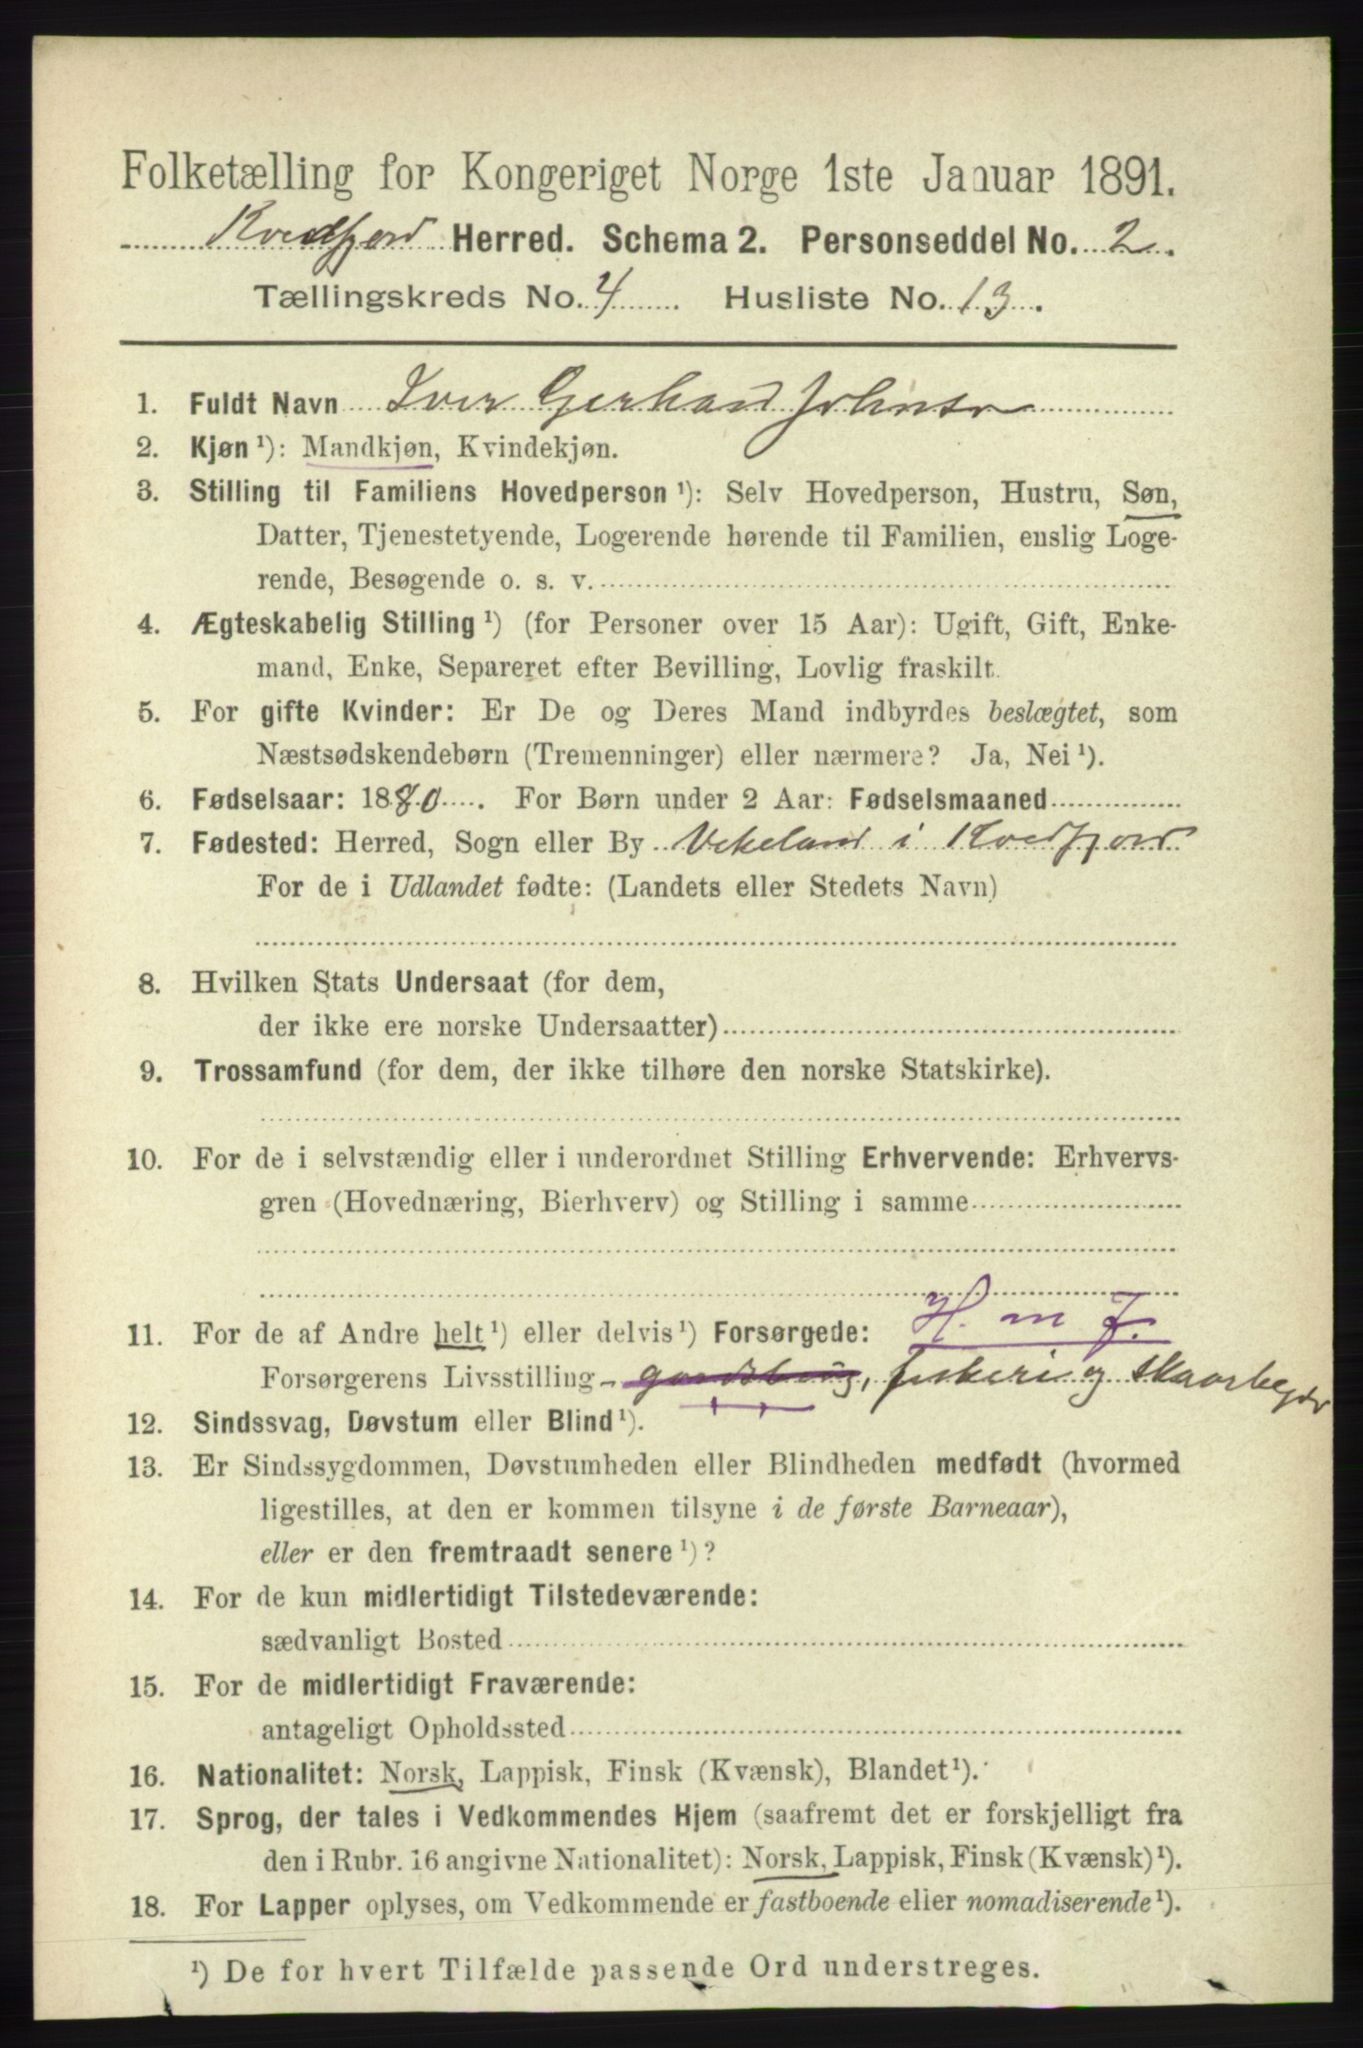 Folketælling for Kongeriget Norge 1ste Januar 1891.
Kvedfjord Herred. Schema 2. Personseddel No. 2.
Tællingskreds No. 4 Husliste No. 13.
1. Fuldt Navn Iver Gerhard Johnsen
2. Kjøn ¹): Mandkjøn, Kvindekjøn.
3. Stilling til Familiens Hovedperson ¹): Selv Hovedperson, Hustru, Søn,
Datter, Tjenestetyende, Logerende hørende til Familien, enslig Loge-
rende, Besøgende o. s. v.
4. Ægteskabelig Stilling ¹) (for Personer over 15 Aar): Ugift, Gift, Enke-
mand, Enke, Separeret efter Bevilling, Lovlig fraskilt.
5. For gifte Kvinder: Er De og Deres Mand indbyrdes beslægtet, som
Næstsødskendebørn (Tremenninger) eller nærmere? Ja, Nei ¹).
6. Fødselsaar: 1880. For Børn under 2 Aar: Fødselsmaaned
7. Fødested: Herred, Sogn eller By Vekeland i Kvedfjord
For de i Udlandet fødte: (Landets eller Stedets Navn)
8. Hvilken Stats Undersaat (for dem,
der ikke ere norske Undersaatter)
9. Trossamfund (for dem, der ikke tilhøre den norske Statskirke).
10. For de i selvstændig eller i underordnet Stilling Erhvervende: Erhvervs-
gren (Hovednæring, Bierhverv) og Stilling i samme
H. m F.
11. For de af Andre helt ¹) eller delvis ¹) Forsørgede:
Forsørgerens Livsstilling - gaardsbrug, fiskeri og
12. Sindssvag, Døvstum eller Blind ¹).
13. Er Sindssygdommen, Døvstumheden eller Blindheden medfødt (hvormed
ligestilles, at den er kommen tilsyne i de første Barneaar),
eller er den fremtraadt senere ¹)?
14. For de kun midlertidigt Tilstedeværende:
sædvanligt Bosted
15. For de midlertidigt Fraværende:
antageligt Opholdssted
16. Nationalitet: Norsk, Lappisk, Finsk (Kvænsk), Blandet ¹).
17. Sprog, der tales i Vedkommendes Hjem (saafremt det er forskjelligt fra
den i Rubr. 16 angivne Nationalitet): Norsk, Lappisk, Finsk (Kvænsk) ¹).
18. For Lapper oplyses, om Vedkommende er fastboende eller nomadiserende ¹).
¹) De for hvert Tilfælde passende Ord understreges.